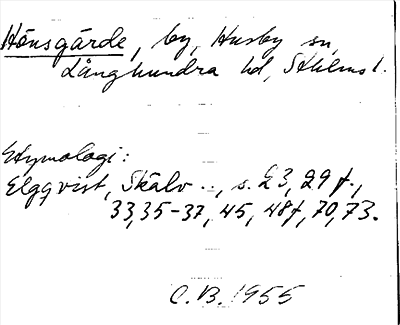 Hönsgärde, by, Husby sn,
Långhundra hd, Sthlms l.
Etymologi:
Elgqvist, Skälv .., s. 23, 29 f.,
33, 35-37, 45, 48f, 70, 73.
C.B. 1955